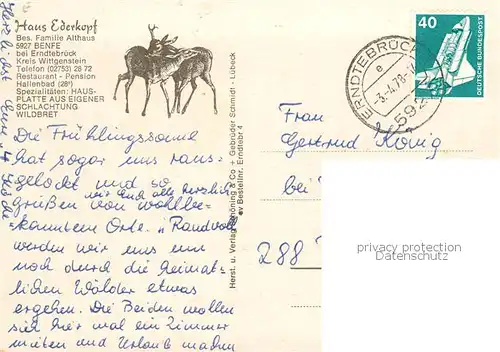 Haus Ederkopf
Bes. Familie Althaus
5927 BENFE
bei Erndtebrück
Kreis Wittgenstein
Telefon (02753) 28 72
Restaurant - Pension
Hallenbad (28°)
Spezialitäten: HAUS-
PLATTE AUS EIGENER
SCHLACHTUNG
WILDBRET
Die Frühlingssonne
hat sogar uns raus-
gelockt und so
wir Euch alle herzlich
grüßen von wohlbe-
kanntem Orte.
werden wir uns nun
noch durch die heimat-
lichen Wälder etwas
ergehen. Die Beiden wollen
sich hier mal ein Zimmer
mieten und Urlaub machen
Herzliebst Eure
Herst. u. Verlag Schöning & Co + Gebrüder Schmidt · Lübeck
Bestellnr. Erndtebr 4
40
DEUTSCHE BUNDESPOST
ERNDTEBRÜCK
e
-3.-4.78
592
Frau
Gertrud König
bei
288
privacy protection
(AnsichtskartenPool.de)